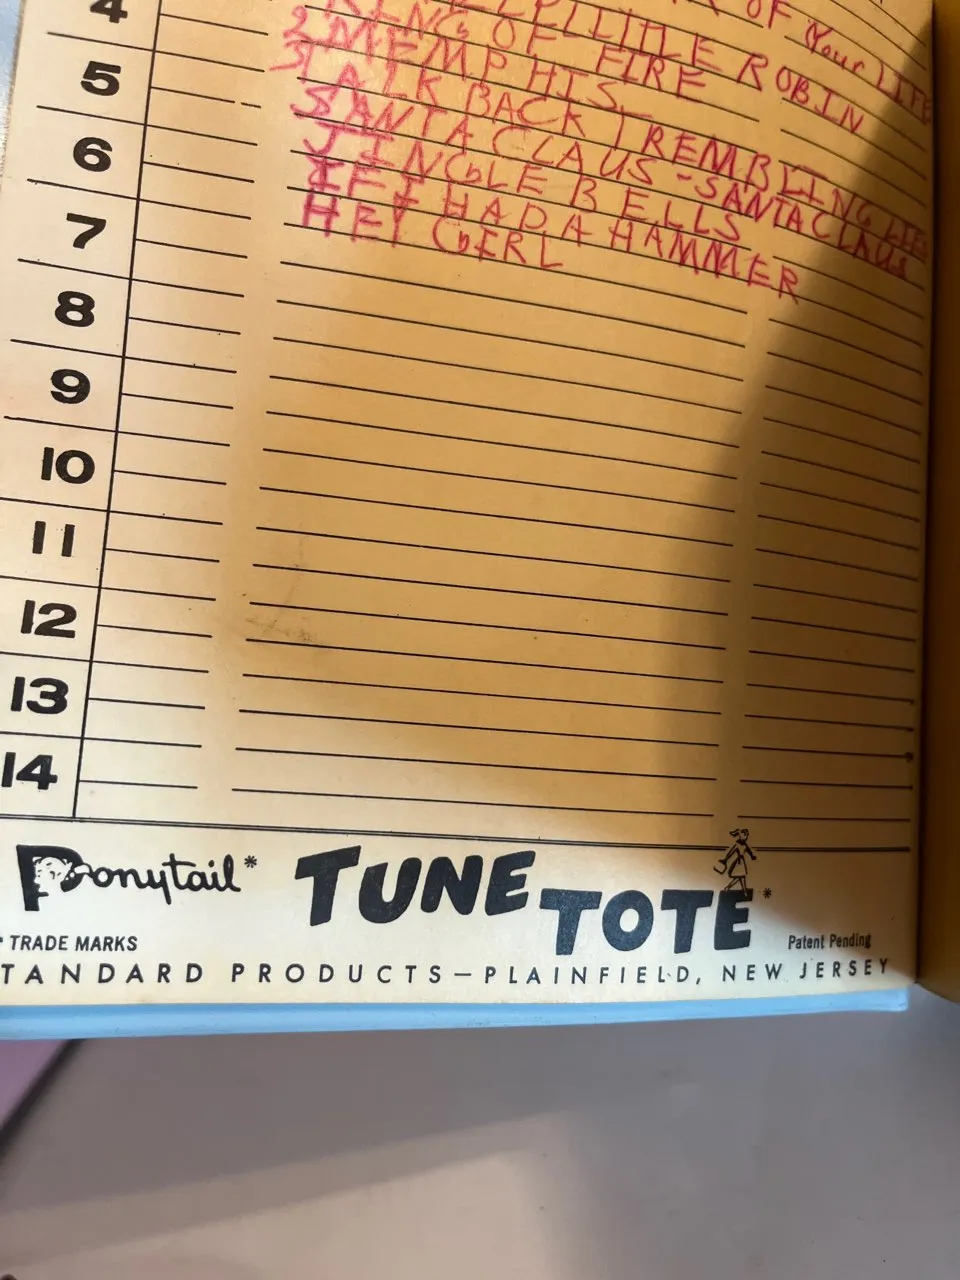 OF YOUR LIFE
LITTLE ROBIN
RING OF FIRE
MEMPHIS
TALK BACK TREMBLING LIPS
SANTA CLAUS - SANTA CLAUS
JINGLE BELLS
IF I HAD A HAMMER
HEY GIRL
4
5
6
7
8
9
10
11
12
13
14
Ponytail* TUNE TOTE*
* TRADE MARKS
Patent Pending
TANDARD PRODUCTS—PLAINFIELD, NEW JERSEY